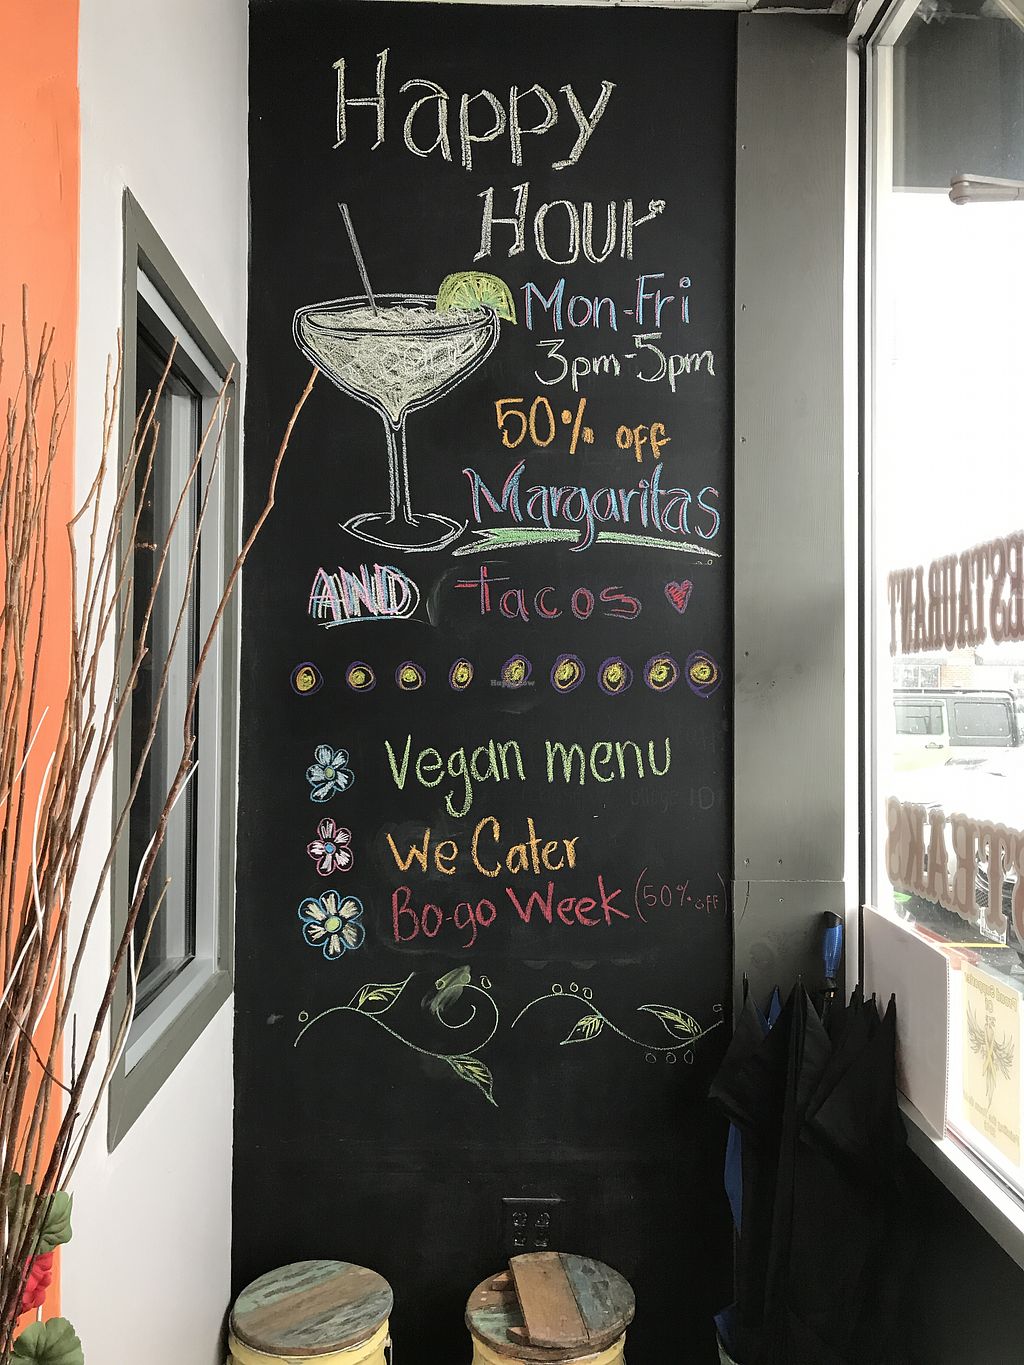 Happy
Hour
Mon-Fri
3pm-5pm
50% off
Margaritas
AND tacos
Vegan menu
We Cater
Bo-go Week (50% off)
RESTAURANT
STEAKS